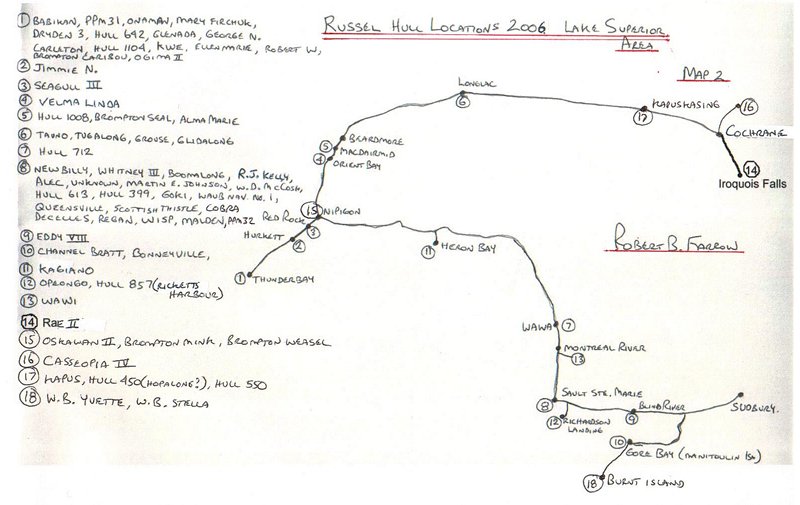 RUSSEL HULL LOCATIONS 2006 LAKE SUPERIOR
AREA
MAP 2
① BABIKAN, PPM31, ONAMAN, MARY FIRCHUK,
DRYDEN 3, HULL 642, GLENADA, GEORGE N.
CARLETON, HULL 1104, KWE, ELLEN MARIE, ROBERT W,
BROMPTON CARIBOU, OGIMA II
② JIMMIE N.
③ SEAGULL III
④ VELMA LINDA
⑤ HULL 1008, BROMPTON SEAL, ALMA MARIE
⑥ TAUNO, TUGALONG, GROUSE, GLIDALONG
⑦ HULL 712
⑧ NEW BILLY, WHITNEY III, BOOMALONG, R.J. KELLY,
ALEC, UNKNOWN, MARTIN E. JOHNSON, W.D. McCLOSH,
HULL 613, HULL 399, GOKI, WAUB NAV. NO. 1,
QUEENSVILLE, SCOTTISH THISTLE, COBRA
DECELLES, REGAN, WISP, MALDEN, PPM32
⑨ EDDY VIII
⑩ CHANNEL BRATT, BONNEYVILLE,
⑪ KAGIANO
⑫ OPEONGO, HULL 857 (RICKETTS
HARBOUR)
⑬ WAWI
⑭ Rae II
⑮ OSKAWAN II, BROMPTON MINK, BROMPTON WEASEL
⑯ CASSEOPIA IV
⑰ KAPUS, HULL 450 (HOPALONG?), HULL 550
⑱ W.B. YVETTE, W.B. STELLA
LONGLAC
⑥
KAPUSKASING
⑰
⑯
COCHRANE
⑭
Iroquois Falls
BEARDMORE
⑤ MACDAIRMID
④ ORIENT BAY
⑮ NIPIGON
RED ROCK
③
HURKETT
②
① THUNDERBAY
⑪ HERON BAY
ROBERT B. FARROW
WAWA ⑦
MONTREAL RIVER
⑬
⑧ SAULT STE. MARIE
⑫ RICHARDSON
LANDING
BLIND RIVER
⑨
SUDBURY.
⑩
GORE BAY (MANITOULIN ISL)
⑱ BURNT ISLAND